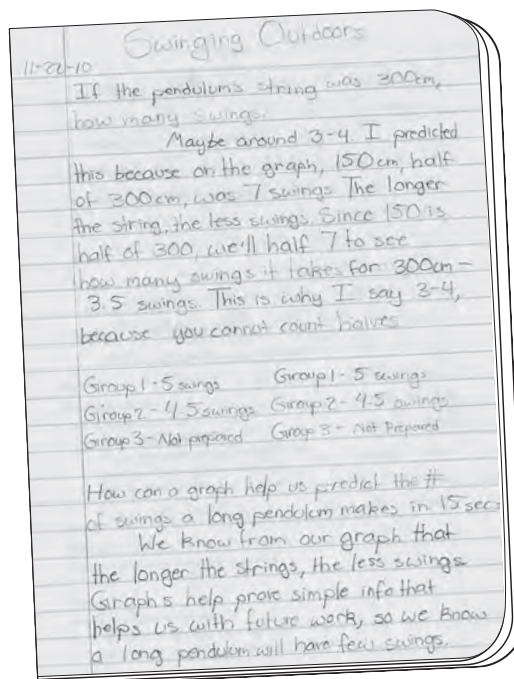 Swinging Outdoors
11-22-10
If the pendulum's string was 300cm,
how many swings.
Maybe around 3-4. I predicted
this because on the graph, 150cm, half
of 300cm, was 7 swings The longer
the string, the less swings. Since 150 is
half of 300, we'll half 7 to see
how many swings it takes for 300cm -
3.5 swings. This is why I say 3-4,
because you cannot count halves
Group 1 - 5 swings Group 1 - 5 swings
Group 2 - 4.5 swings Group 2 - 4.5 swings
Group 3 - Not prepared Group 3 - Not Prepared
How can a graph help us predict the #
of swings a long pendulum makes in 15 sec
We know from our graph that
the longer the strings, the less swings
Graphs help prove simple info that
helps us with future work, so we know
a long pendulum will have few swings.